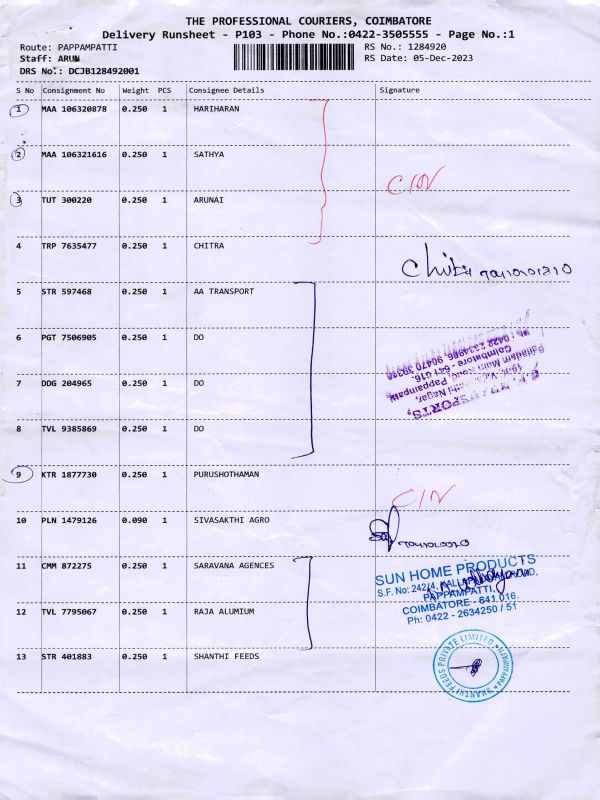 THE PROFESSIONAL COURIERS, COIMBATORE
Delivery Runsheet - P103 - Phone No.:0422-3505555 - Page No.:1
Route: PAPPAMPATTI RS No.: 1284920
Staff: ARUN RS Date: 05-Dec-2023
DRS No.: DCJB128492001
S No Consignment No Weight PCS Consignee Details Signature
1 MAA 106320878 0.250 1 HARIHARAN
2 MAA 106321616 0.250 1 SATHYA
C/N
3 TUT 300220 0.250 1 ARUNAI
4 TRP 7635477 0.250 1 CHITRA
Chitra
5 STR 597468 0.250 1 AA TRANSPORT
6 PGT 7506905 0.250 1 DO
7 DDG 204965 0.250 1 DO
Coimbatore - 641 016.
8 TVL 9385869 0.250 1 DO
9 KTR 1877730 0.250 1 PURUSHOTHAMAN
C/N
10 PLN 1479126 0.090 1 SIVASAKTHI AGRO
11 CMM 872275 0.250 1 SARAVANA AGENCES
SUN HOME PRODUCTS
S.F. No: 242/4,
PAPPAMPATTI,
COIMBATORE - 641 016.
Ph: 0422 - 2634250 / 51
12 TVL 7795067 0.250 1 RAJA ALUMIUM
13 STR 401883 0.250 1 SHANTHI FEEDS
SHANTHI FEEDS PRIVATE LIMITED
PAPPAMPATTI